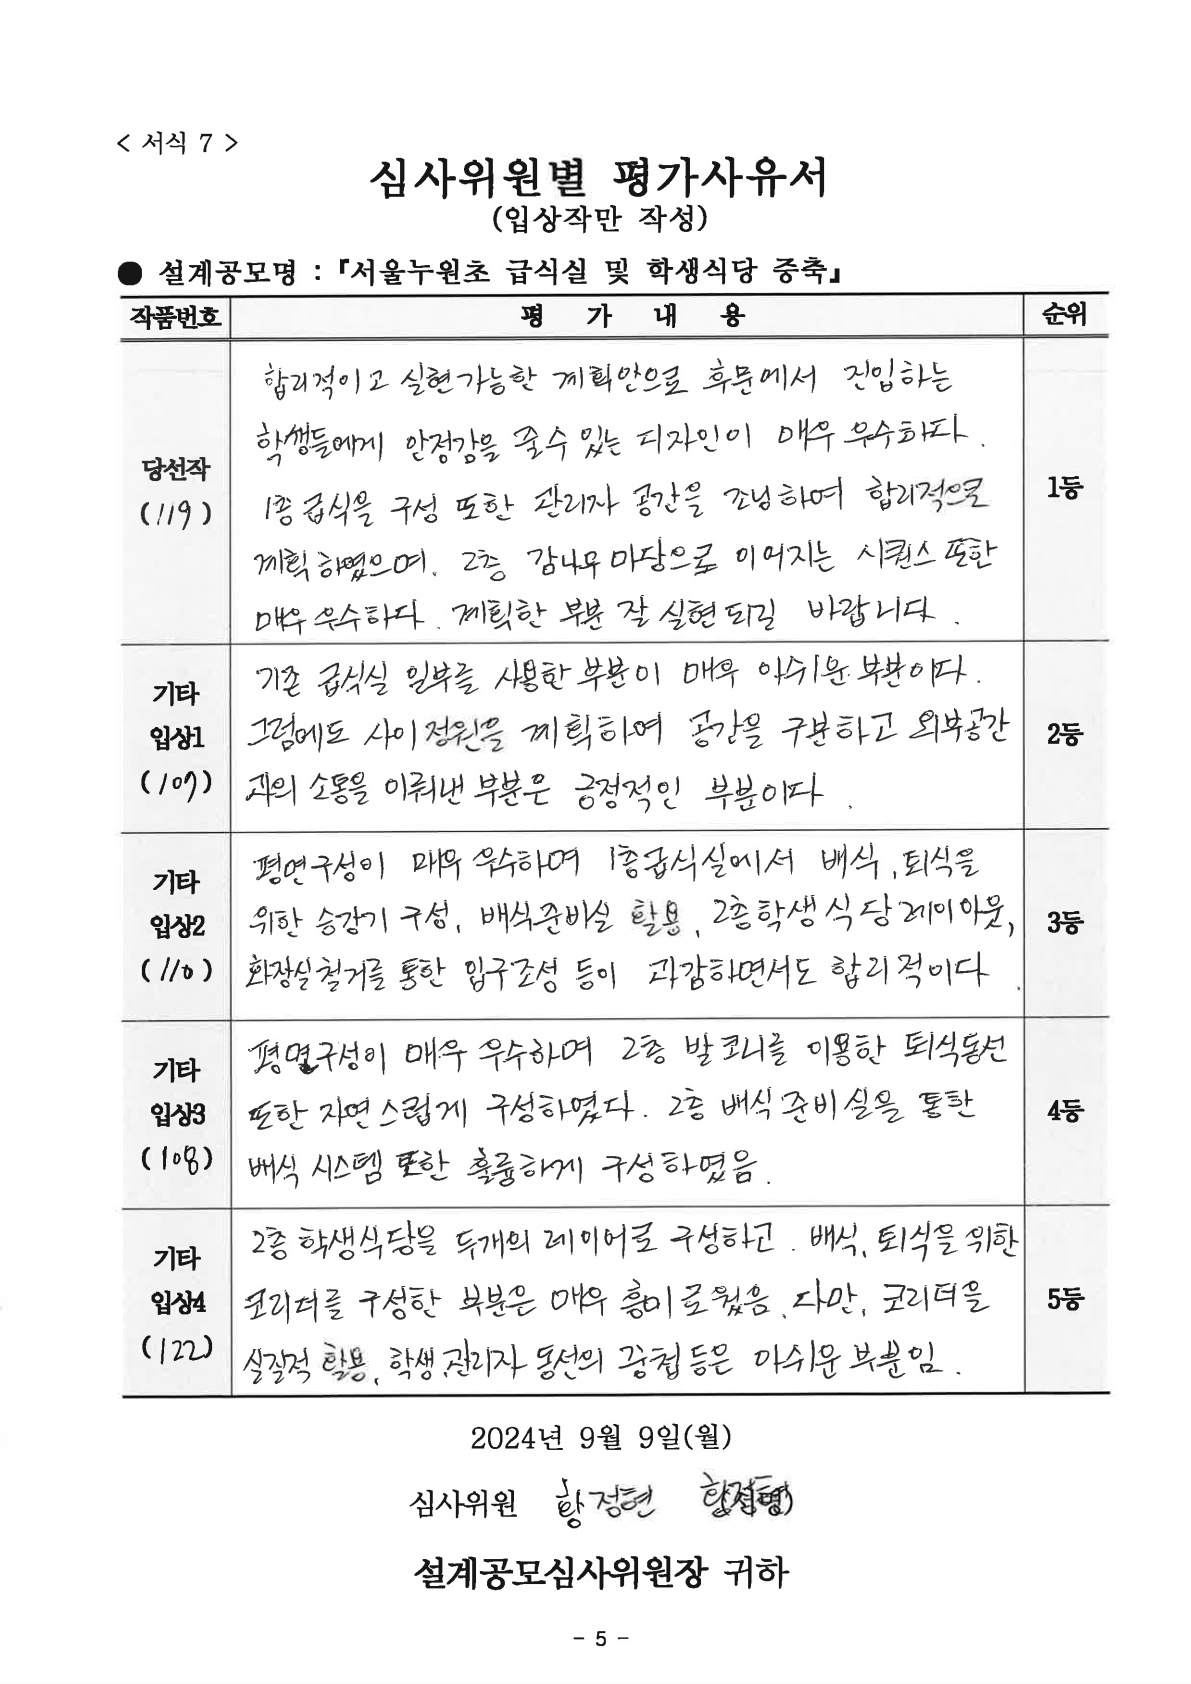 < 서식 7 >
심사위원별 평가사유서
(입상작만 작성)
● 설계공모명 : 『서울누원초 급식실 및 학생식당 증축』
작품번호 평 가 내 용 순위
당선작
(119)
합리적이고 실현가능한 계획안으로 후문에서 진입하는
학생들에게 안정감을 줄수 있는 디자인이 매우 우수하다.
1층 급식을 구성 또한 관리자 공간을 조닝하여 합리적으로
계획하였으며. 2층 감나무 마당으로 이어지는 시퀀스 또한
매우 우수하다. 계획한 부분 잘 실현되길 바랍니다.
1등
기타
입상1
(107)
기존 급식실 일부를 사용한 부분이 매우 아쉬운 부분이다.
그럼에도 사이정원을 계획하여 공간을 구분하고 외부공간
과의 소통을 이뤄낸 부분은 긍정적인 부분이다.
2등
기타
입상2
(110)
평면구성이 매우 우수하며 1층급식실에서 배식, 퇴식을
위한 승강기 구성, 배식준비실 활용, 2층학생식당 레이아웃,
화장실철거를 통한 입구조성 등이 과감하면서도 합리적이다.
3등
기타
입상3
(108)
평면구성이 매우 우수하며 2층 발코니를 이용한 퇴식동선
또한 자연스럽게 구성하였다. 2층 배식준비실을 통한
배식 시스템 또한 훌륭하게 구성하였음.
4등
기타
입상4
(122)
2층 학생식당을 두개의 레이어로 구성하고. 배식, 퇴식을 위한
코리더를 구성한 부분은 매우 흥미로웠음. 다만, 코리더을
실질적 활용, 학생,관리자 동선의 중첩 등은 아쉬운 부분임.
5등
2024년 9월 9일(월)
심사위원 황정현 황정현
설계공모심사위원장 귀하
- 5 -